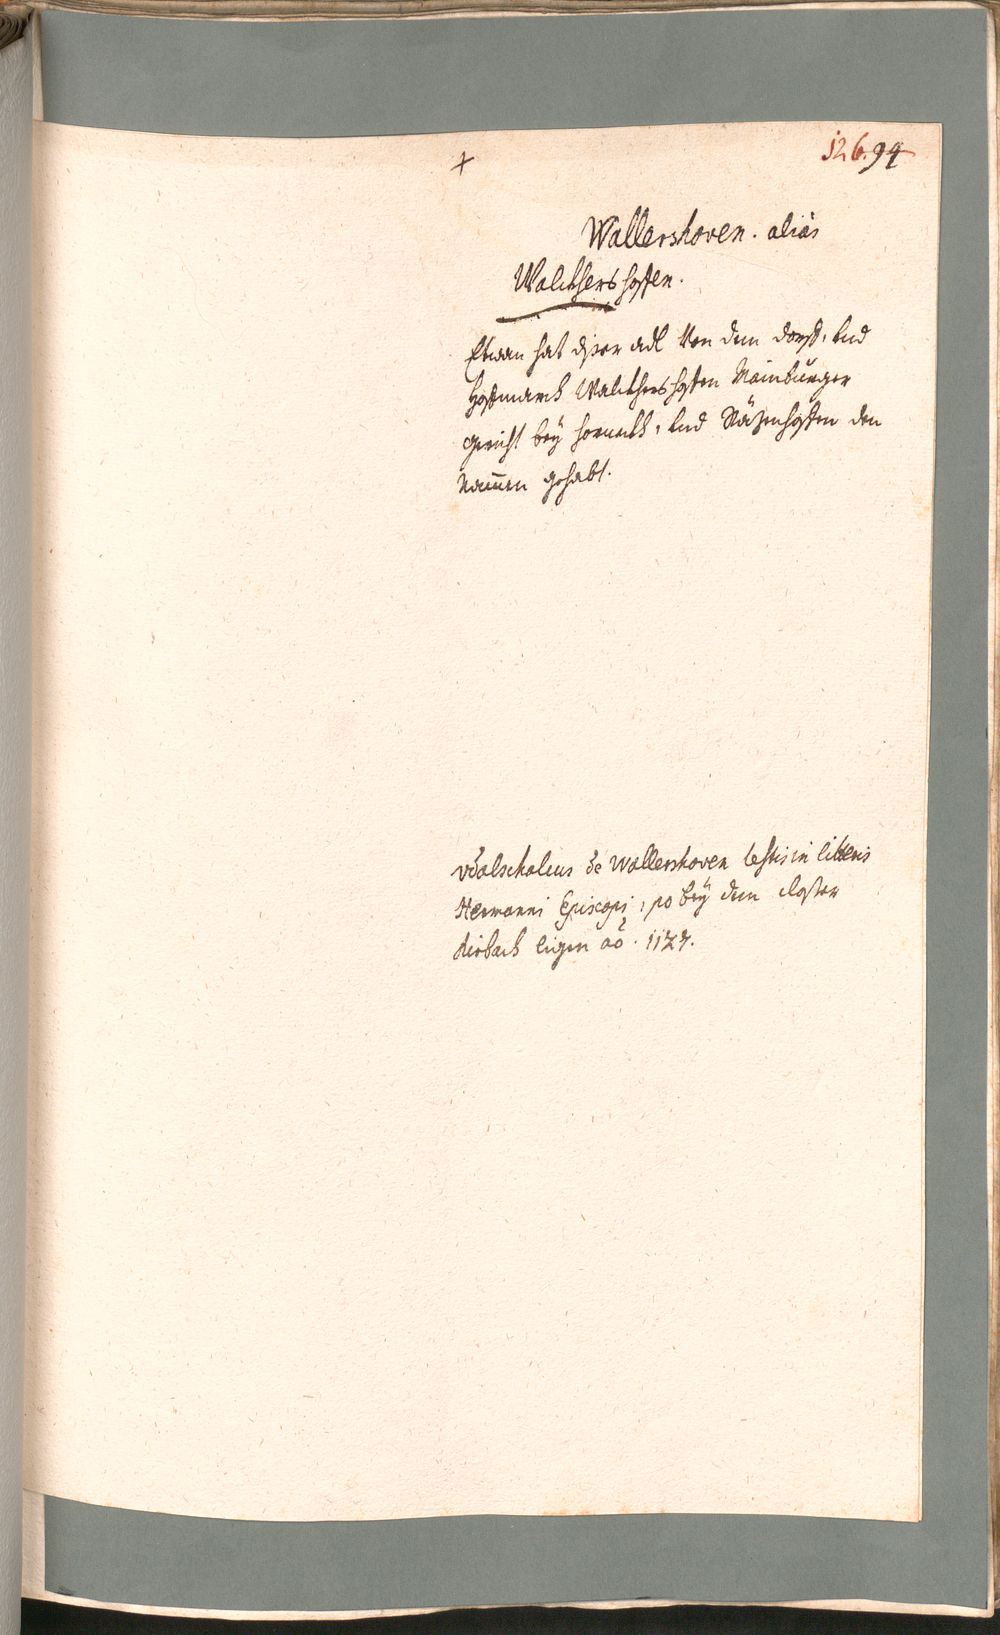 +
126. 94
Wallershoven. aliàs
Walckhershoffen.
Etwan hat diser adl Von dem dorff, und
Hoffmarch Walckhershoffen Mainburger
gericht bey hornekh, und Räzenhoffen den
Nam̄en gehabt.
Vdalschalcus de Wallershoven testis in litteris
Hermanni Episcopi, so bey dem closter
Airbach ligen aō. 1127.